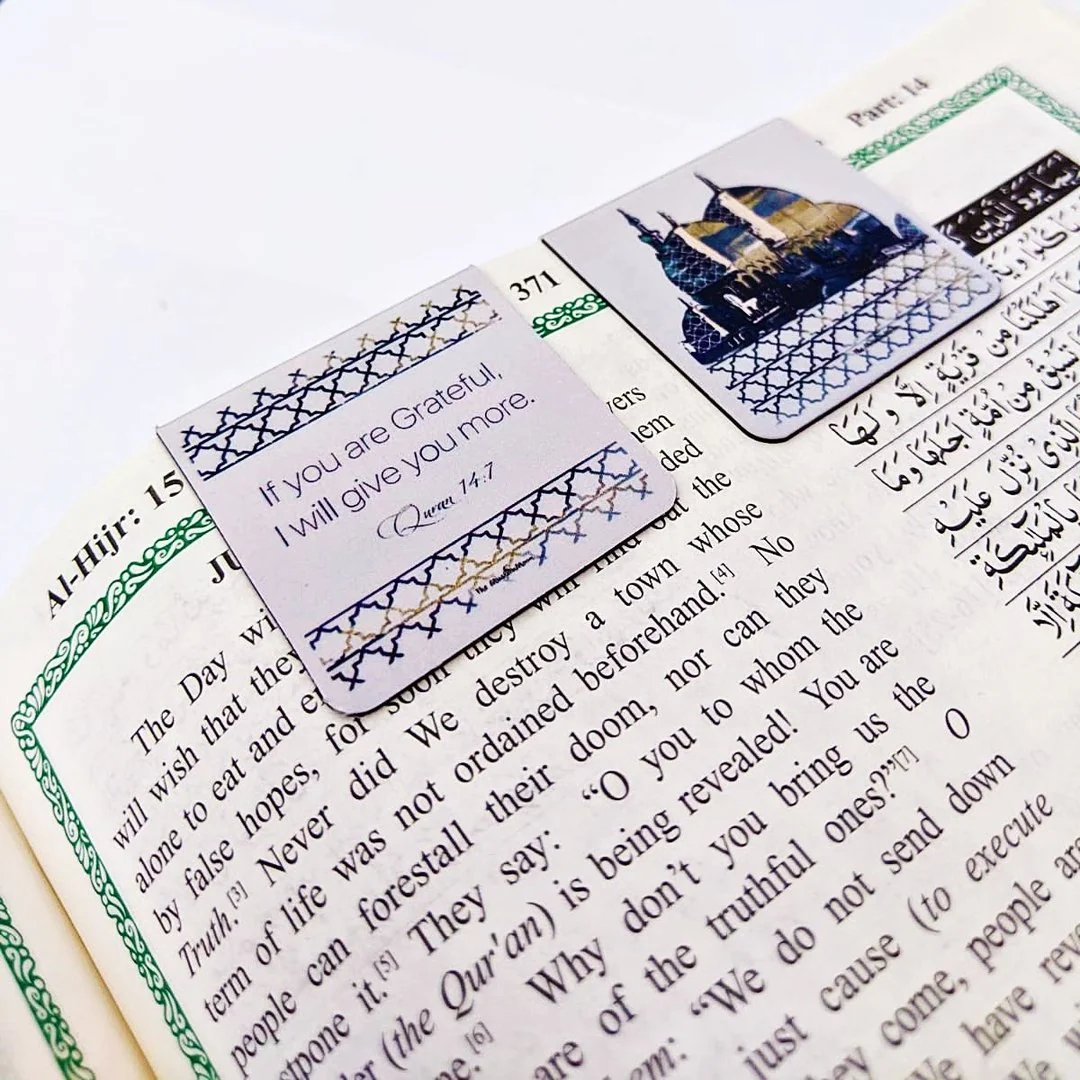 Part: 14
371
Al-Hijr: 15
If you are Grateful,
I will give you more.
Quran 14:7
The Day
will wish that they
alone to eat and
by false hopes, for soon they will find out the
Truth.[3] Never did We destroy a town whose
term of life was not ordained beforehand.[4] No
people can forestall their doom, nor can they
it.[5] They say: “O you to whom the
(the Qur'an) is being revealed! You are
[6] Why don’t you bring us the
are of the truthful ones?”[7] O
“We do not send down
just cause (to execute
come, people
have
رُبَمَا يَوَدُّ الَّذِينَ
مِنْ قَرْيَةٍ اِلَّا وَلَهَا
مِنْ اُمَّةٍ اَجَلَهَا وَمَا
الَّذِى نُزِّلَ عَلَيْهِ
بِالْمَلٰٓئِكَةِ